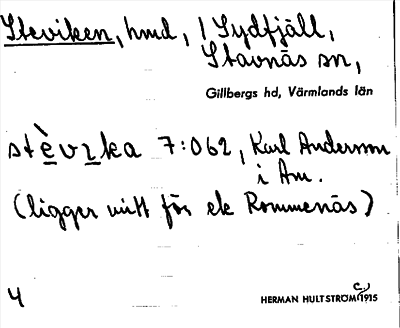 Steviken, hmd, i Sydfjäll,
Stavnäs sn,
Gillbergs hd, Värmlands län
stèvıka 7:062, Karl Anderson
i Am.
(ligger mitt för ek Rommenäs)
4
HERMAN HULTSTRÖM c. 1915